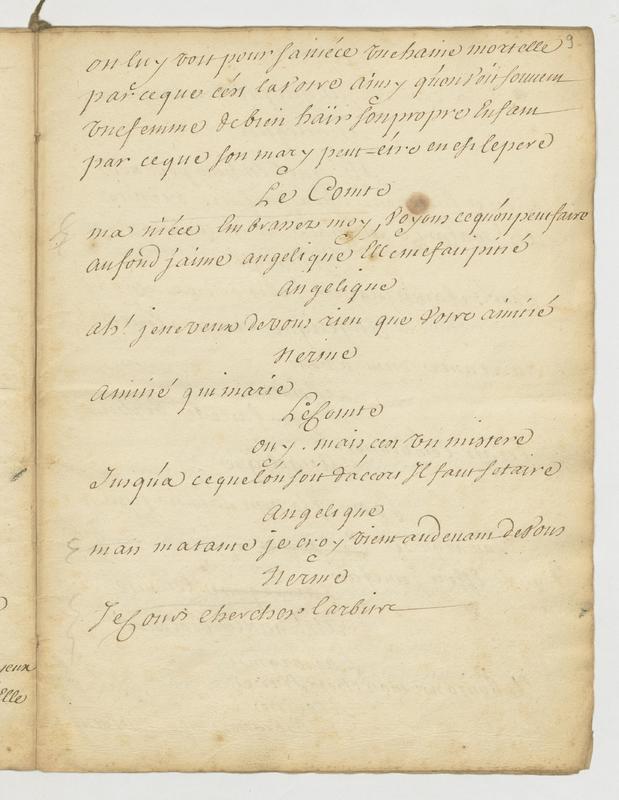 9
on luy voit pour sa niéce une haine mortelle
parceque c'est la votre ainsy qu'on voit souvent
une femme de bien haïr son propre Enfant
par ce que son mary peut=être en est le pere
Le Comte
ma niéce Embrassez moy, voyons ce qu'on peut faire
au fond j'aime angelique Elle me fait pitié
Angélique
ah! je ne veux de vous rien que votre amitié
Nerine
Amitié qui marie
Le Comte
ouy. mais c'est un mistere
Jusqu'a ce que l'on soit d'accort Il faut se taire
Angelique
mais ma tante je croy vient au devant de vous
Nerine
Je Cours chercher l'arbitre
yeux
Elle